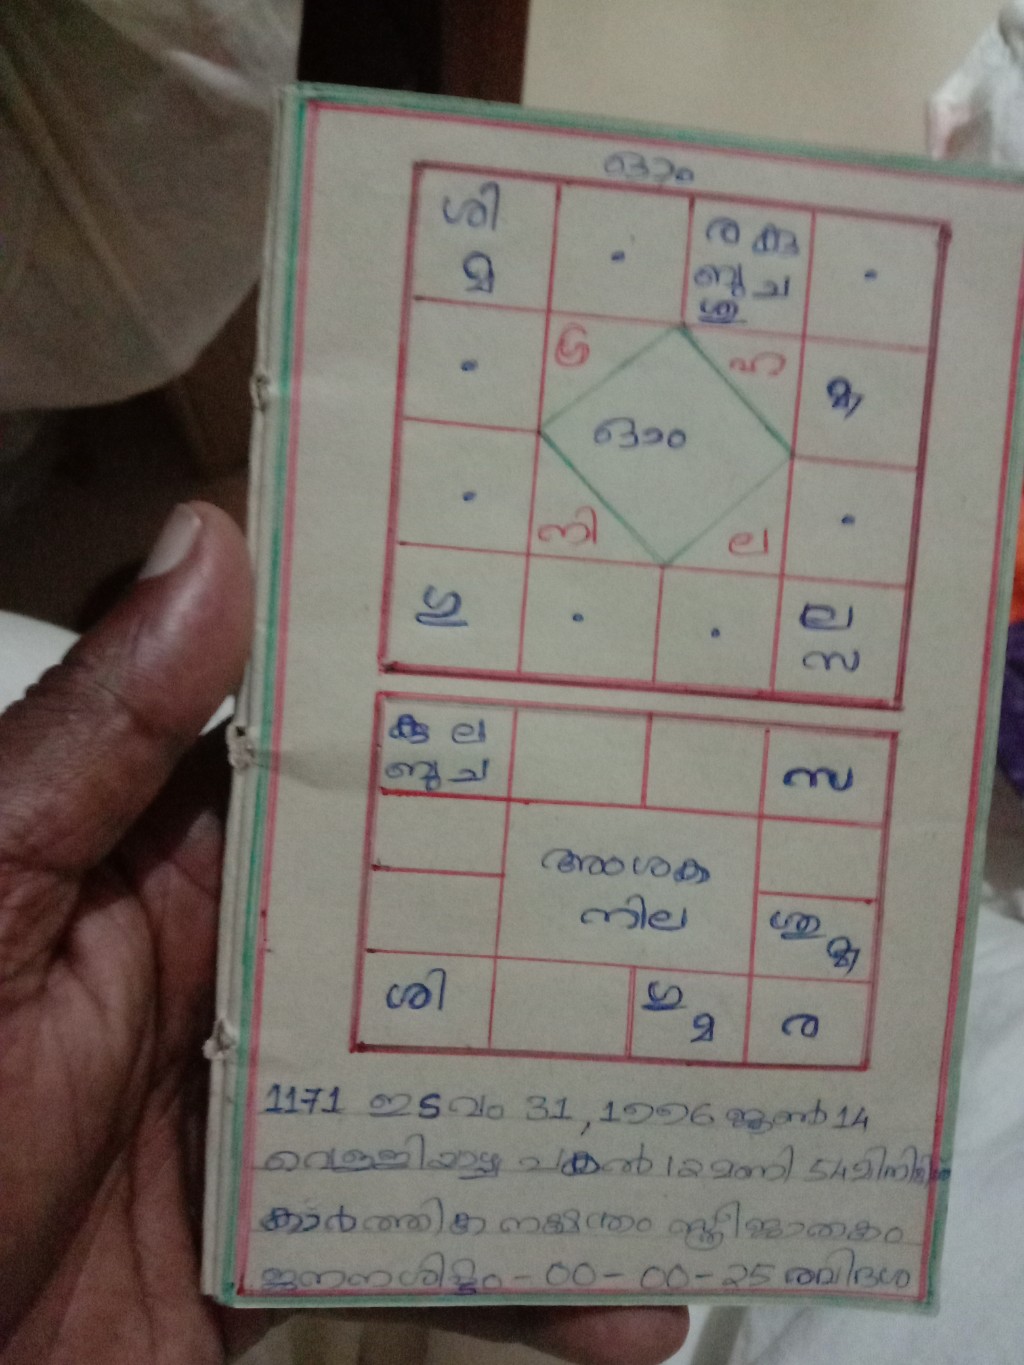 ഓം
ശി
മ
ര കു
ബു ച
ശു
ഗ്ര ഹ
മ
ഓം
നി ല
ഗു
ല
സ
കു ല
ബു ച
സ
അംശക
നില
ശു
ശി
ഗു
മ
ര
1171 ഇടവം 31, 1996 ജൂൺ 14
വെള്ളിയാഴ്ച പകൽ 12 മണി 54 മിനിട്ട്
കാർത്തിക നക്ഷത്രം സ്ത്രീജാതകം
ജനനശിഷ്ടം - 00 - 00 - 25 രവിദശ